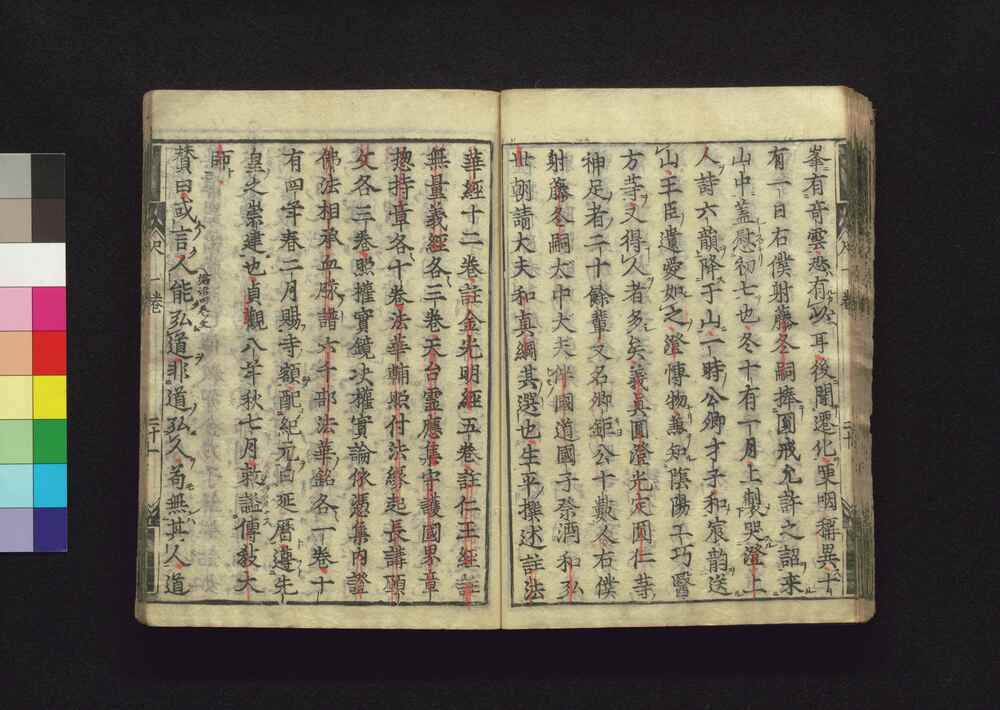 峯有奇雲悲有以耳後聞遷化渠咽稱異十
有一日右僕射藤冬嗣捧圓戒允許之詔来
山中蓋慰初七也冬十有一月上製哭澄上
人詩六韻降于山一時公卿才子和宸韵送
山王臣遺愛如之澄博物兼知陰陽工巧醫
方等又得人者多矣義真圓澄光定圓仁等
神足者二十餘輩又名卿鉅公十數人右僕
射藤冬嗣太中大夫伴國道國子祭酒和弘
世朝請大夫和真綱其選也生平撰述註法
人 尺一巻 二十
華經十二巻註金光明經五巻註仁王經註
無量義經各三巻天台靈應集守護國界章
惣持章各十巻法華輔照付法緣起長講願
文各三巻照權實鏡决權實論依憑集内證
佛法相承血脉譜六千部法華銘各一巻十
有四年春二月賜寺額配紀元曰延暦遵先
皇之崇建也貞觀八年秋七月敕謚傳教大
師
賛曰或言人能弘道非道弘人苟無其人道
人 尺一巻 二十一